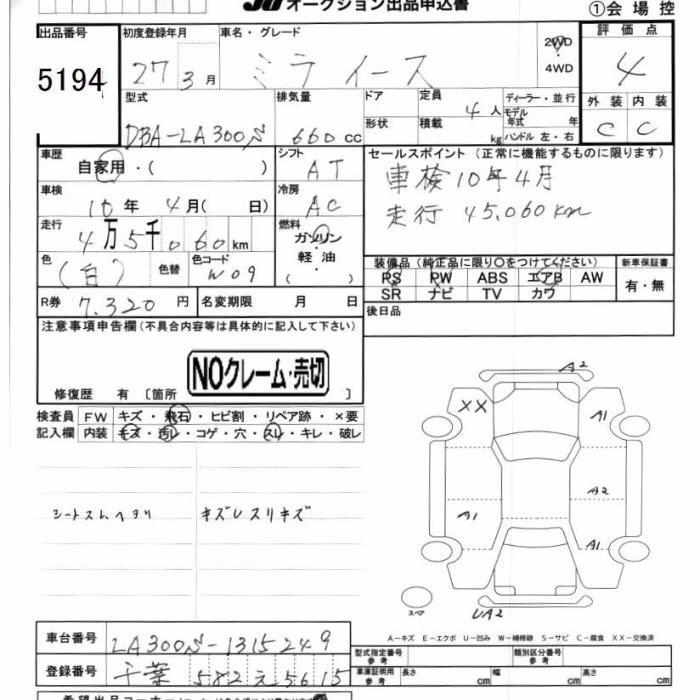 オークション出品申込書
①会場控
出品番号
5194
初度登録年月
27 3月
車名・グレード
ミライース
2WD
4WD
評価点
4
外装 内装
C C
型式
DBA-LA300S
排気量
660cc
ドア
形状
定員
4人
積載
kg
ディーラー・並行
モデル年式 年
ハンドル 左・右
車歴
自家用・( )
シフト
AT
車検
10年 4月( 日)
冷房
AC
走行
4万5千060km
燃料
ガソリン
軽・油
( )
色
(白)
色替
色コード
W09
R券 7,320円
名変期限 月 日
セールスポイント (正常に機能するものに限ります)
車検10年4月
走行 45,060km
装備品 (純正品に限り○をつけてください)
PS PW ABS エアB AW
SR ナビ TV カワ
新車保証書
有・無
後日品
注意事項申告欄(不具合内容等は具体的に記入して下さい)
NOクレーム・売切
修復歴 有 〔箇所 〕
検査員 FW キズ・飛石・ヒビ割・リペア跡・×要
記入欄 内装 キズ・汚レ・コゲ・穴・スレ・キレ・破レ
シートスレヘタリ
キズレスリキズ
A2
XX
A1
A2
A1
A1
スペア
UA2
A-キズ E-エクボ U-凹み W-補修跡 S-サビ C-腐食 XX-交換済
車台番号
LA300S-1315249
登録番号
千葉 582 え 5615
型式指定番号 参考
類別区分番号 参考
車庫証明用 参考
長さ cm
幅 cm
高さ cm